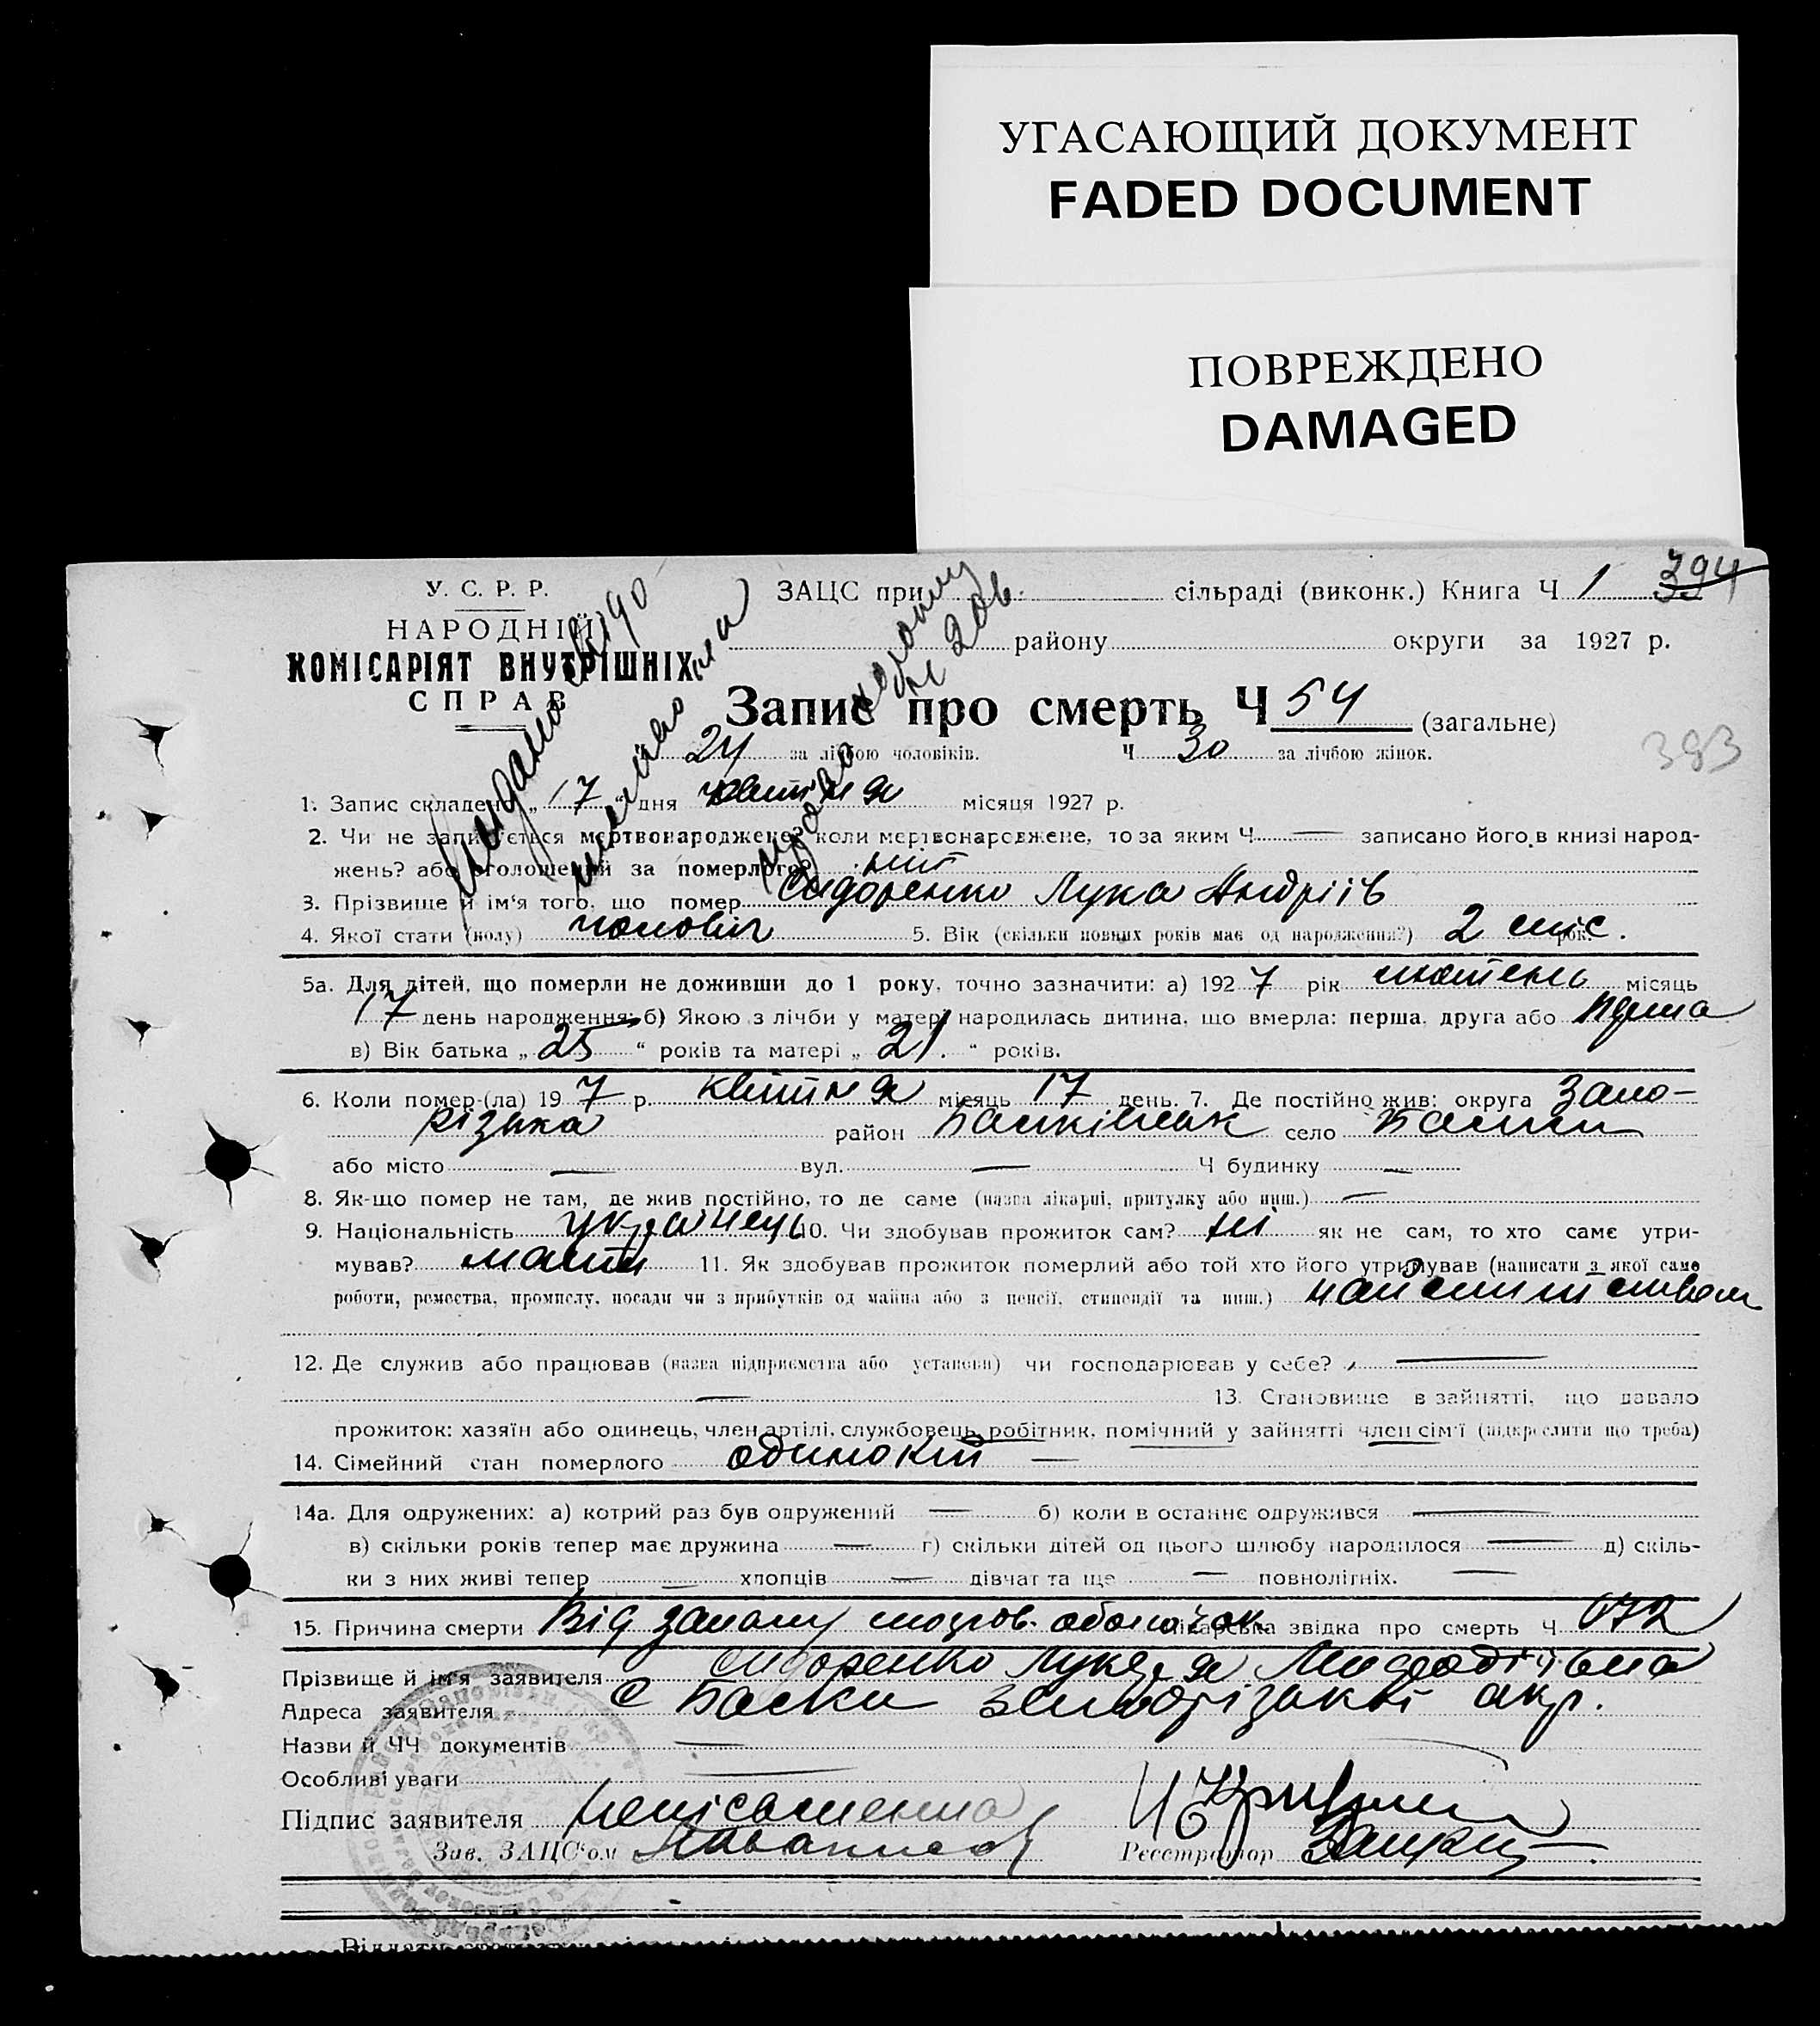 УГАСАЮЩИЙ ДОКУМЕНТ
FADED DOCUMENT
ПОВРЕЖДЕНО
DAMAGED
У. С. Р. Р.
НАРОДНІЙ
КОМІСАРІЯТ ВНУТРІШНІХ
СПРАВ
ЗАЦС при сільраді (виконк.) Книга Ч 1 394
району округи за 1927 р.
Запис про смерть Ч 54 (загальне)
24 за лічбою чоловіків. Ч 30 за лічбою жінок.
393
1. Запис складено „17“ дня квітня місяця 1927 р.
2. Чи не записується мертвонароджене? коли мертвонароджене, то за яким Ч — записано його в книзі народ-
жень? або оголошений за померлого?
3. Прізвище й ім'я того, що помер Сидоренко Лука Андріїв
4. Якої стати (полу) чоловіч 5. Вік (скільки повних років має од народження?) 2 міс. рок.
5а. Для дітей, що померли не доживши до 1 року, точно зазначити: а) 1927 рік лютень місяць
17 день народження; б) Якою з лічби у матері народилась дитина, що вмерла: перша, друга або перша
в) Вік батька „25“ років та матері „21.“ років.
6. Коли помер-(ла) 197 р. квітня місяць 17 день. 7. Де постійно жив: округа Запо-
різька район село
або місто — вул. — Ч будинку —
8. Як-що помер не там, де жив постійно, то де саме (назва лікарні, притулку або инш.) —
9. Національність українець 10. Чи здобував прожиток сам? ні як не сам, то хто саме утри-
мував? мати 11. Як здобував прожиток померлий або той хто його утримував (написати з якої саме
роботи, ремества, промислу, посади чи з прибутків од майна або з пенсії, стипендії та инш.)
12. Де служив або працював (назва підприємства або установи) чи господарював у себе? —
— 13. Становище в зайнятті, що давало
прожиток: хазяїн або одинець, член артілі, службовець, робітник, помічний у зайнятті член сім'ї (підкреслити що треба)
14. Сімейний стан померлого одинокий —
14а. Для одружених: а) котрий раз був одружений — б) коли в останнє одружився —
в) скільки років тепер має дружина — г) скільки дітей од цього шлюбу народилося — д) скіль-
ки з них живі тепер — хлопців — дівчат та ще — повнолітніх. —
15. Причина смерти Від запалу мозгов. оболочок лікарська звідка про смерть Ч 072
Прізвище й ім'я заявителя Сидоренко
Адреса заявителя с окр.
Назви й ЧЧ документів —
Особливі уваги —
Підпис заявителя неписьменна
Зав. ЗАЦС'ом
Реєстратор